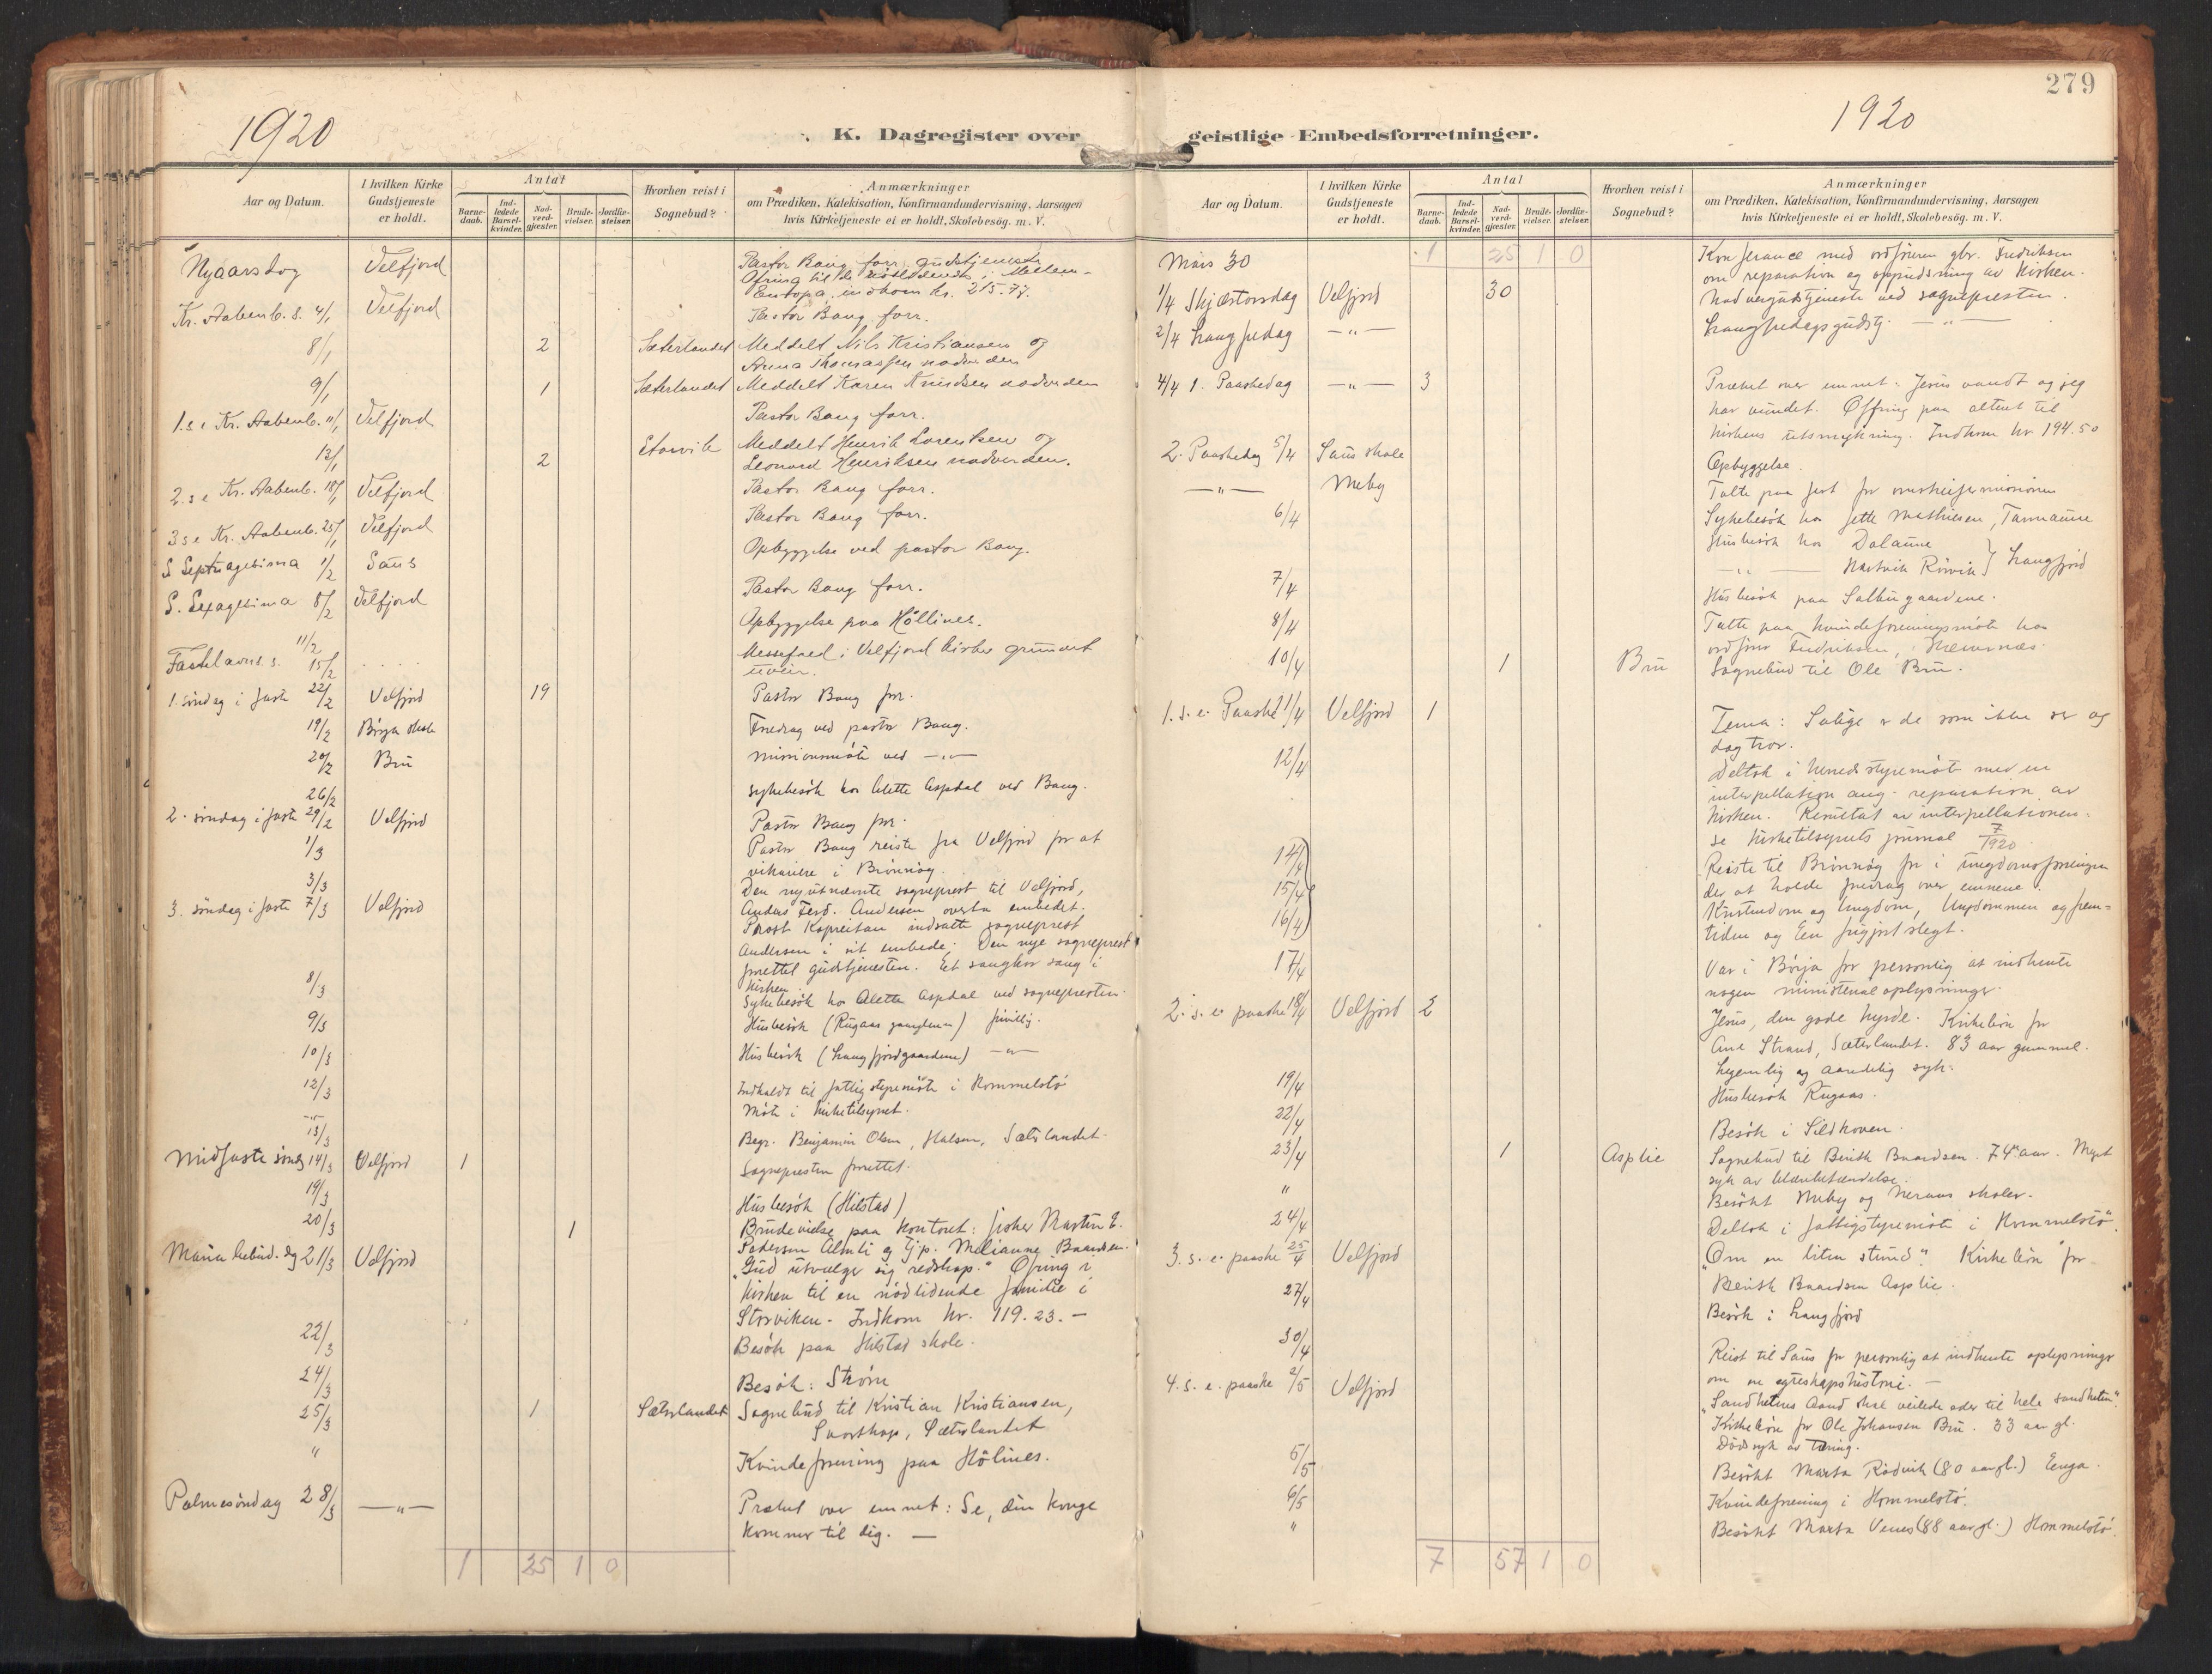 1920
K. Dagregister over
Aar og Datum.
I hvilken Kirke Gudstjeneste er holdt.
Antal
Barne-daab.
Ind-ledede Barsel-kvinder.
Nad-verd-gjæster.
Brude-vielser.
Jordfæ-stelser.
Hvorhen reist i Sognebud?
Anmærkninger
om Prædiken, Katekisation, Konfirmandundervisning, Aarsagen
hvis Kirketjeneste ei er holdt, Skolebesög. m. V.
Nyaarsdag Velfjord Pastor Bang forr. gudstjeneste
Ofring til de nödlidende i Mellem-
Europa, indkom kr. 215.77.
Kr. Aabenb. s. 4/1 Velfjord Pastor Bang forr.
8/1 2 Sæterlandet Meddelt Nils Kristiansen og
Anna Thomassen nadverden
9/1 1 Sæterlandet Meddelt Karen Knudsen nadverden
1. s. e. Kr. Aabenb. 11/1 Velfjord Pastor Bang forr.
13/1 2 Storvik Meddelt Henrik Lorentsen og
Leonard Henriksen nadverden.
2. s e Kr. Aabenb. 18/1 Velfjord Pastor Bang forr.
3 s e Kr. Aabenb. 25/1 Velfjord Pastor Bang forr.
S Septuagesima 1/2 Saus Opbyggelse ved pastor Bang.
S. Sexagesima 8/2 Velfjord Pastor Bang forr.
11/2 Opbyggelse paa Höllines.
Fastelavns s. 15/2 Messefald i Velfjord kirke grunnet
uveir.
1. söndag i faste 22/2 Velfjord 19 Pastor Bang forr.
19/2 Börja skole Foredrag ved pastor Bang.
20/2 Bru missionsmöte ved —"—
26/2 sykebesök hos Alette Aspdal ved Bang.
2. söndag i faste 29/2 Velfjord Pastor Bang forr.
1/3 Pastor Bang reiste fra Velfjord for at
vikariere i Brönnöy.
3/3 Den nyutnævnte sogneprest til Velfjord,
Anders Ferd. Andersen overta embedet.
3. söndag i faste 7/3 Velfjord Prost Kopreitan indsatte sogneprest
Andersen i sit embede. Den nye sogneprest
forrettet gudstjenesten. Et sangkor sang i
kirken.
8/3 Sykebesök hos Alette Aspdal ved sognepresten.
9/3 Husbesök (Rugaas gaardene) frivillig.
10/3 Husbesök (Langfjordgaardene) —"—
12/3 Indkaldt til fattigstyremöte i Hommelstö
—"— Möte i kirketilsynet.
13/3 Begr. Benjamin Olsen, Halsen, Sæterlandet.
Midfaste sönd. 14/3 Velfjord 1 Sognepresten forrettet.
19/3 Husbesök (Hilstad)
20/3 1 Brudevielse paa kontoret: fisker Martin E.
Pedersen Almli og Gjp. Melianne Baardsen.
Maria bebud. dg 21/3 Velfjord „Gud utvælger sig redskap." Ofring i
kirken til en nödlidende familie i
Storviken. Indkom kr. 119.23. —
22/3 Besök paa Hilstad skole.
24/3 Besök: Ström
25/3 1 Sæterlandet Sognebud til Kristian Kristiansen,
Svorthap, Sæterlandet
" Kvindeforening paa Hölines.
Palmesöndag 28/3 —"— Præket over emnet: Se, din konge
kommer til dig. —
1 25 1 0
279
1920
geistlige Embedsforretninger.
Aar og Datum.
I hvilken Kirke Gudstjeneste er holdt.
Antal
Barne-daab.
Ind-ledede Barsel-kvinder.
Nad-verd-gjæster.
Brude-vielser.
Jordfæ-stelser.
Hvorhen reist i Sognebud?
Anmærkninger
om Prædiken, Katekisation, Konfirmandundervisning, Aarsagen
hvis Kirketjeneste ei er holdt, Skolebesög. m. V.
1 25 1 0
Mars 30 Konferance med ordföreren gbr. Fredriksen
om reparation og oppudsning av kirken.
1/4 Skjærtorsdag Velfjord 30 Nadvergudstjeneste ved sognepresten.
2/4 Langfredag —"— Langfredagsgudstj. —"—
4/4 1. Paaskedag —"— 3 Præket over emnet: Jesus vandt og jeg
har vundet. Offring paa alteret til
kirkens utsmykning. Indkom kr 194.50
2. Paaskedag 5/4 Saus skole Opbyggelse.
—"— Neby Talte paa fest for
6/4 Sykebesök hos Jette Mathiesen, Tarmaune
Husbesök hos Dalaune
—"— Hartvik Rörvik } Langfjord
7/4 Husbesök paa Salbugaardene.
8/4 Talte paa kvindeforeningsmöte hos
ordförer Fredriksen,
10/4 1 Bru Sognebud til Ole Bru.
1. s. e. Paaske 11/4 Velfjord 1 Tema: Salige er de som ikke ser og
dog tror.
12/4 Deltok i herredsstyremöte med en
interpellation ang. reparation av
kirken. Resultat av interpellationen:
se kirketilsynets journal 7/1920.
14/4 Reiste til Brönnöy for i ungdomsforeningen
15/4 der at holde foredrag over emnene:
16/4 Kristendom og Ungdom, Ungdommen og frem-
tiden og En frigjort slegt.
17/4 Var i Börja for personlig at indhente
nogen ministerialoplysninger.
2. s. e. paaske 18/4 Velfjord 2 Jesus, den gode hyrde. Kirkebön for
Ane Strand, Sæterlandet. 83 aar gammel.
Legemlig og aandelig syk.
19/4 Husbesök Rugaas.
22/4 Besök i Sildhoven.
23/4 1 Asplie Sognebud til Berith Baardsen. 74 aar. Meget
syk av blærebetændelse.
" Besökt Neby og Neraas skoler.
24/4 Deltok i fattigstyremöte i Hommelstö.
3. s. e. paaske 25/4 Velfjord „Om en liten stund". Kirkebön for
Berith Baardsen Asplie.
27/4 Besök i Langfjord
30/4 Reist til Saus for personlig at indhente oplysninger
om en egteskapshistorie. —
4. s. e. paaske 2/5 Velfjord „Sandhetens Aand skal veilede eder til hele sandheten".
Kirkebön for Ole Johansen Bru. 33 aar gl.
Dödssyk av tæring.
5/5 Besökt Marta Rödvik (80 aar gl.) Eenga.
6/5 Kvindeforening i Hommelstö.
" Besökt Marta Venes (88 aar gl.) Hommelstö.
7 57 1 0